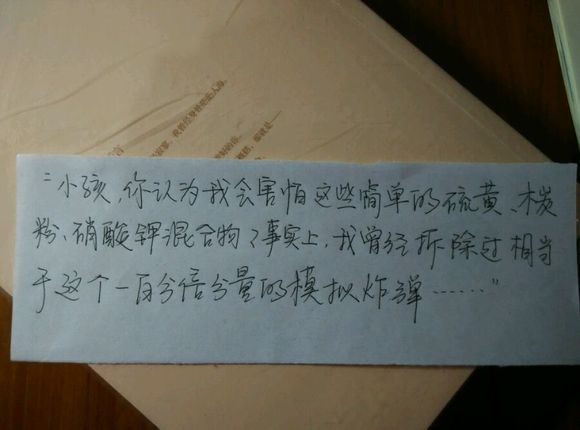 “小孩,你认为我会害怕这些简单的硫黄、炭
粉、硝酸钾混合物?事实上,我曾经拆除过相当
于这个一百分倍分量的模拟炸弹……”